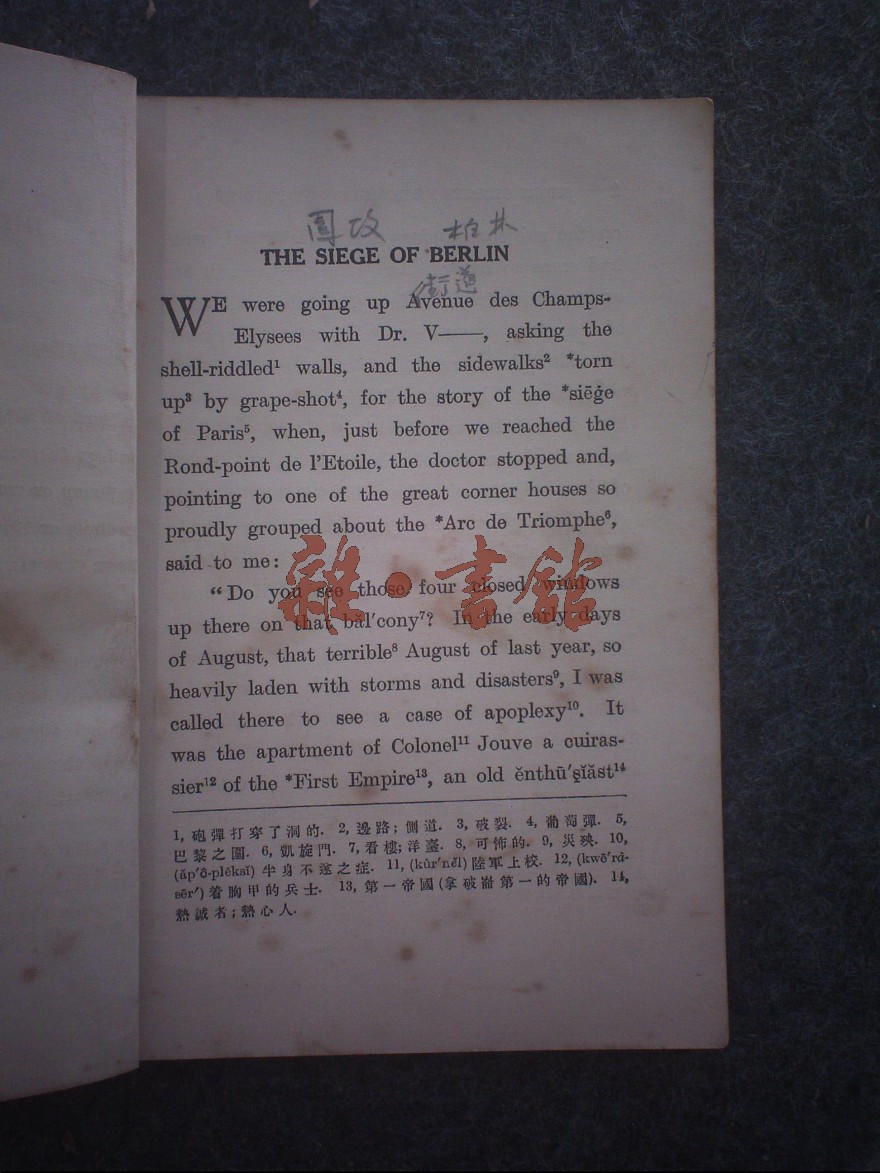 圍攻 柏林
THE SIEGE OF BERLIN
街道
WE were going up Avenue des Champs-
Elysees with Dr. V——, asking the
shell-riddled¹ walls, and the sidewalks² *torn
up³ by grape-shot⁴, for the story of the *siēġe
of Paris⁵, when, just before we reached the
Rond-point de l'Etoile, the doctor stopped and,
pointing to one of the great corner houses so
proudly grouped about the *Arc de Triomphe⁶,
said to me:
"Do you see those four closed windows
up there on that băl′cony⁷? In the early days
of August, that terrible⁸ August of last year, so
heavily laden with storms and disasters⁹, I was
called there to see a case of apoplexy¹⁰. It
was the apartment of Colonel¹¹ Jouve a cuiras-
sier¹² of the *First Empire¹³, an old ĕnthū′şĭăst¹⁴
雜·書館
1, 砲彈打穿了洞的. 2, 邊路; 側道. 3, 破裂. 4, 葡萄彈. 5,
巴黎之圍. 6, 凱旋門. 7, 看樓; 洋臺. 8, 可怖的. 9, 災殃. 10,
(ăp′ô-plĕksĭ) 半身不遂之症. 11, (kûr′nĕl) 陸軍上校. 12, (kwē′rȧ-
sēr′) 着胸甲的兵士. 13, 第一帝國 (拿破崙第一的帝國). 14,
熱誠者; 熱心人.